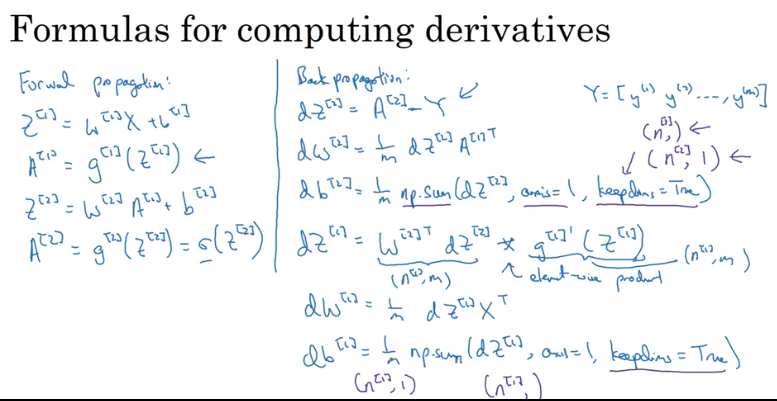 Formulas for computing derivatives
Forward propagation:
Z^[1] = W^[1]X + b^[1]
A^[1] = g^[1](Z^[1]) ←
Z^[2] = W^[2] A^[1] + b^[2]
A^[2] = g^[2](Z^[2]) = σ(Z^[2])
Back propagation:
dZ^[2] = A^[2] - Y
dW^[2] = 1/m dZ^[2] A^[1]T
db^[2] = 1/m np.sum(dZ^[2], axis=1, keepdims=True)
dZ^[1] = W^[2]T dZ^[2] * g^[1]'(Z^[1])
(n^[1], m)
element-wise product
(n^[1], m)
dW^[1] = 1/m dZ^[1] X^T
db^[1] = 1/m np.sum(dZ^[1], axis=1, keepdims=True)
(n^[1], 1)
(n^[1], )
Y = [y^(1) y^(2) ..., y^(m)]
(n^[2], ) ←
(n^[2], 1) ←